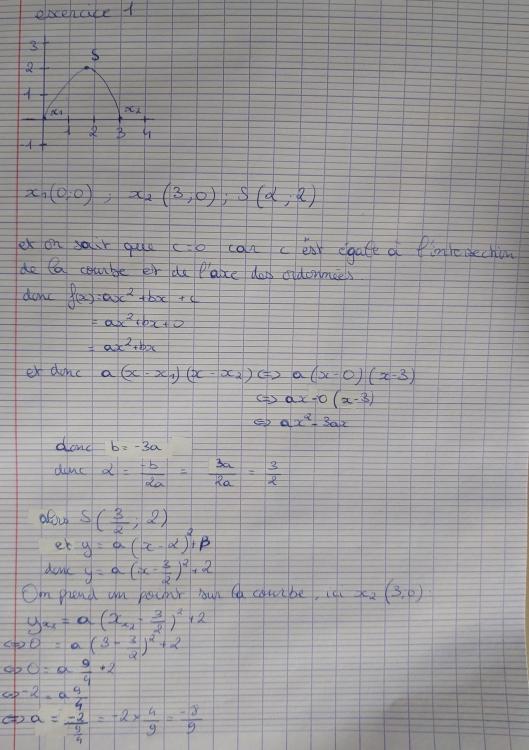 exercice 1
3
2 S
1
x₁ x₂
1 2 3 4
-1
x₁(0;0) ; x₂(3,0) ; S(α ; 2)
et on sait que c=0 car c est égale à l'intersection
de la courbe et de l'axe des ordonnées.
donc f(x)=ax²+bx+c
= ax²+bx+0
= ax²+bx
et donc a(x-x₁)(x-x₂) <=> a(x-0)(x-3)
<=> ax-0(x-3)
<=> ax²-3ax
donc b=-3a
donc α = -b/2a = 3a/2a = 3/2
alors S(3/2 ; 2)
et y = a(x-α)²+β
donc y = a(x-3/2)²+2
On prend un point sur la courbe, ici x₂(3,0).
yₓ₂ = a(xₓ₂-3/2)²+2
<=> 0 = a(3-3/2)²+2
<=> 0 = a 9/4 +2
<=> -2 = a 9/4
<=> a = -2/(9/4) = -2×4/9 = -8/9